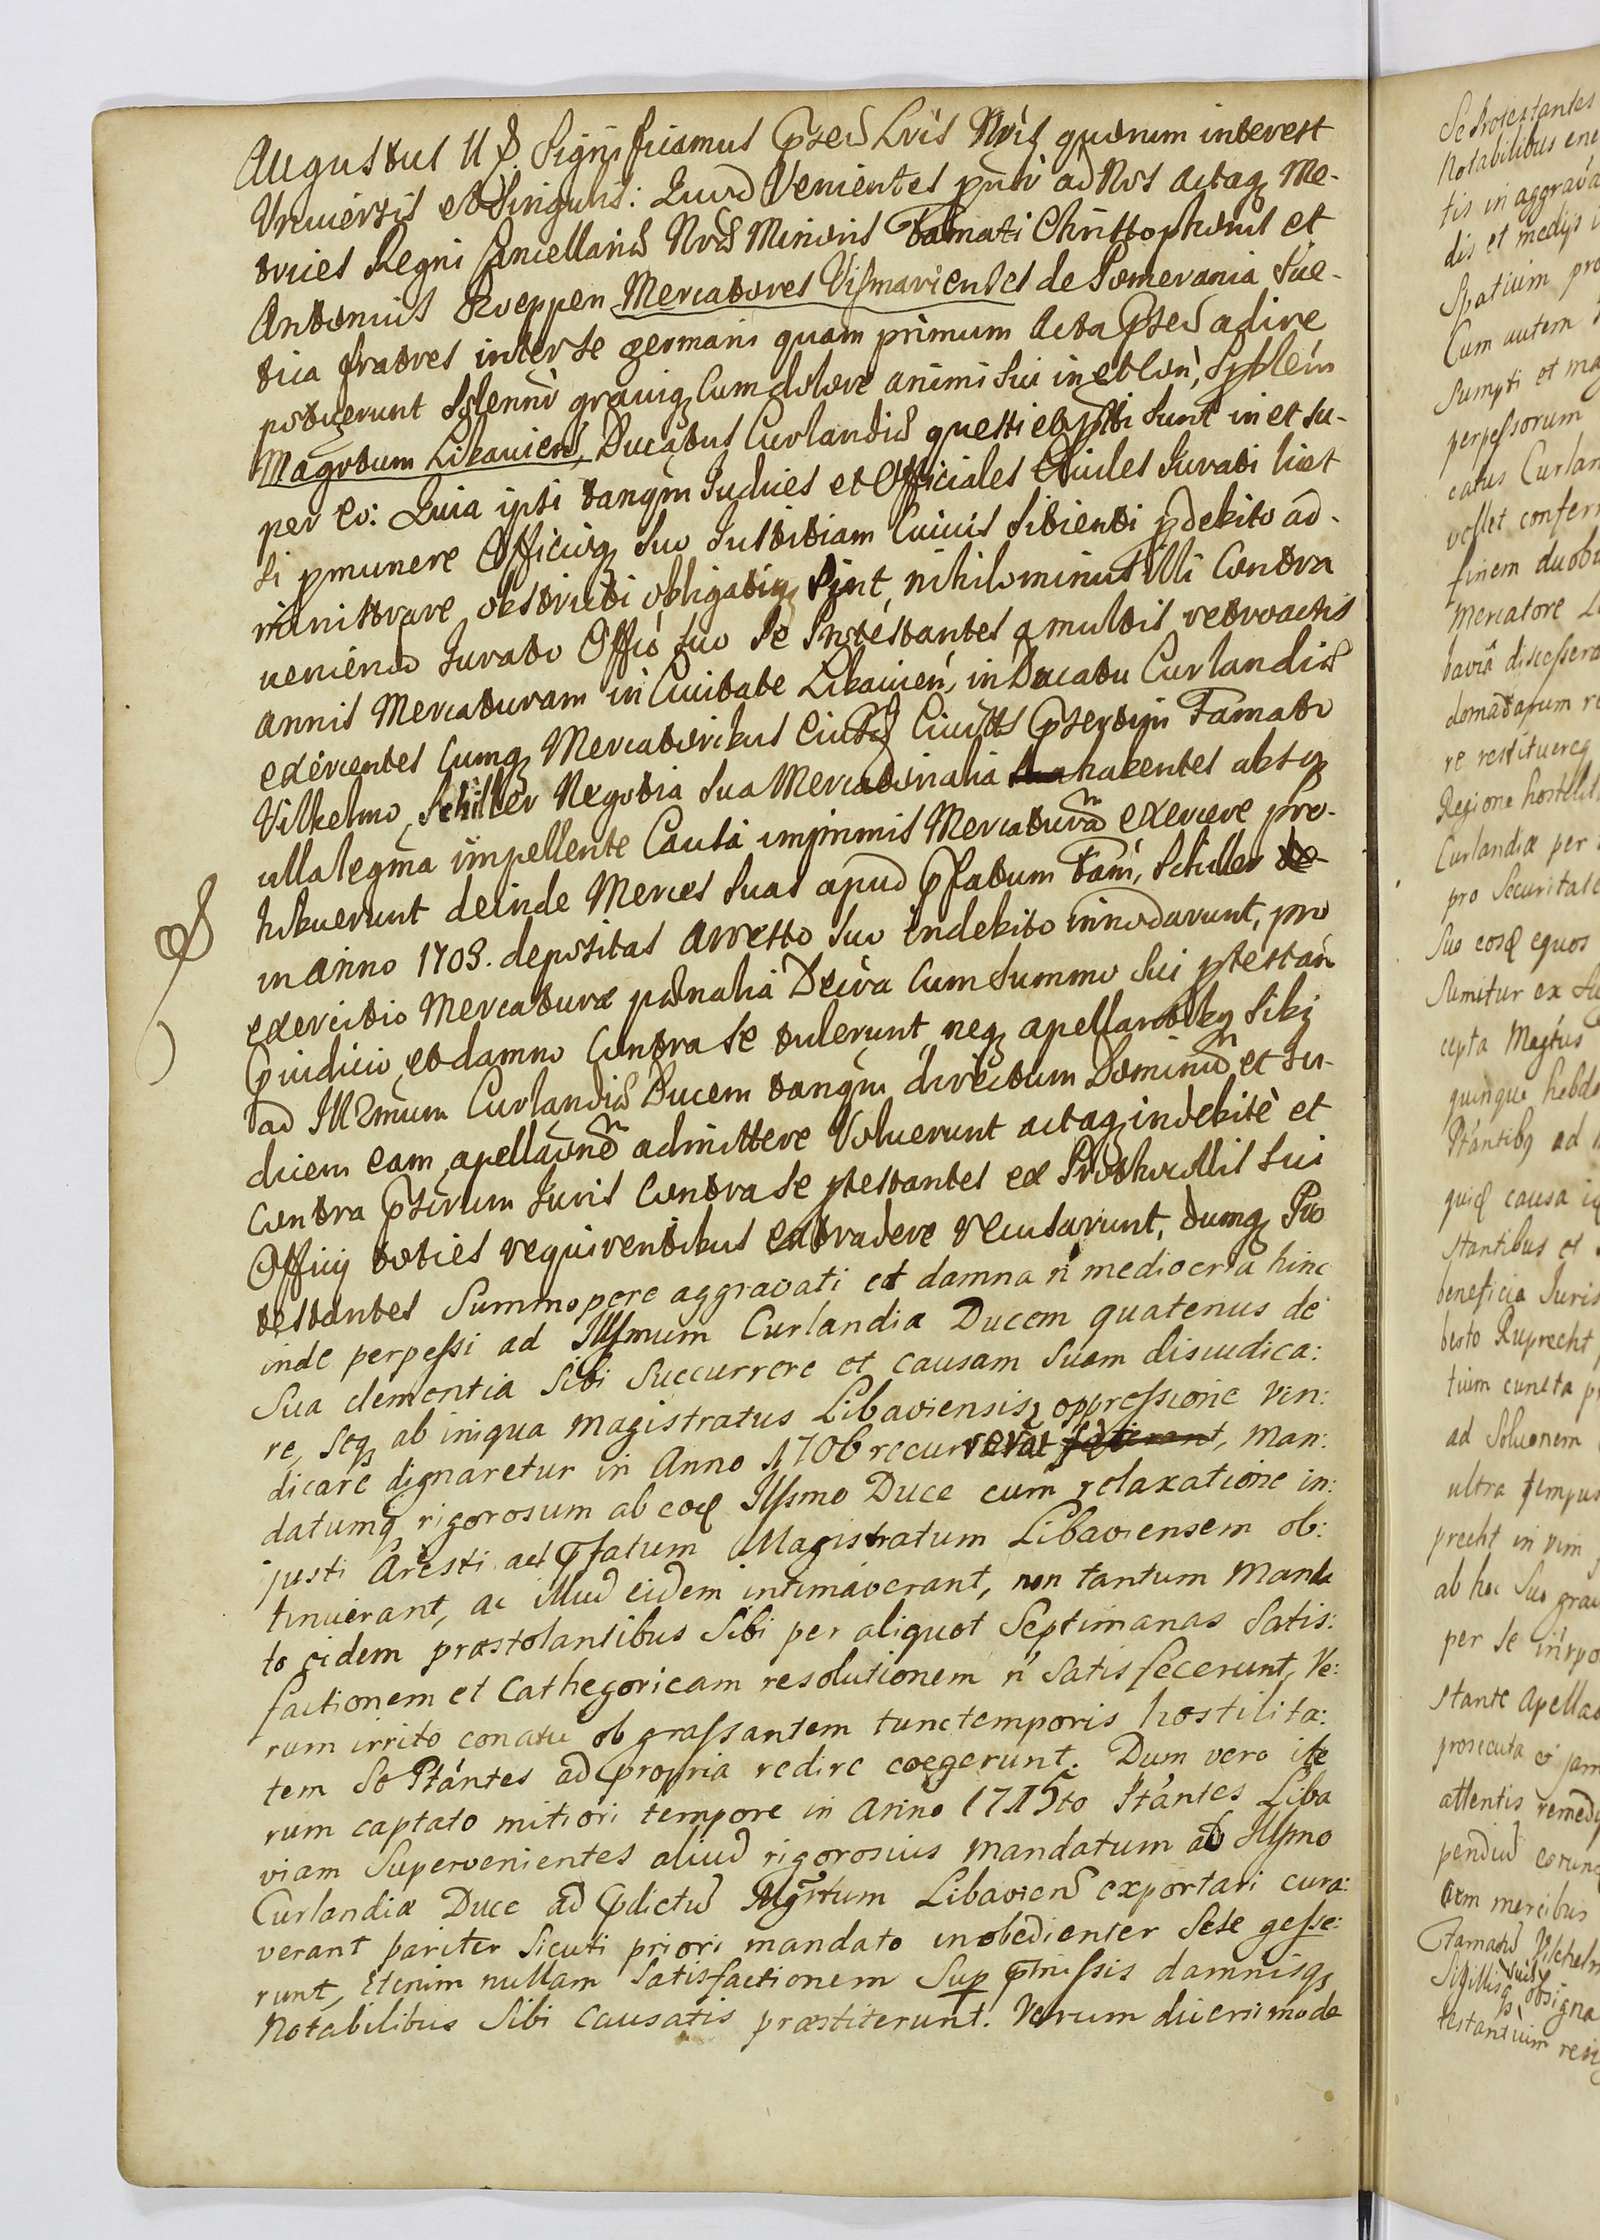 Augustus II Significamus Pntib Lris Nris quorum interest
Universis et Singulis: Quod Venientes psnlr ad Nos Actaq Me-
trices Regni Cancellariæ Nræ Minoris Famati Christophorus et
Antonius Koeppen Mercatores Vismarienses de Pomerania Sue-
tica fratres inter se germani quam primum Acta Pnsia adire
potuerunt Solennr graviq Cum dolore animi Sui in et Con, Sp̃lem
Magrtum Libavien, Ducatus Curlandiæ questi et Ptti sunt in et su-
per eo: Quia ipsi tanqm Judices et Officiales Civiles Jurati licet
si p munere Officioq Suo Justitiam Cuivis Sitienti p debito ad-
ministrare obstricti obligatiq sint, nihilominus illi Contra
veniendo Jurato Offio Suo Se Protestantes a multis retroactis
annis Mercaturam in Civitate Libavien, in Ducatu Curlandiæ
exercentes Cumq Mercatoribus Eiusd Civitts Psertim Famato
Vilhelmo Schiller Negotia Sua Mercatorialia habentes absq
ulla legma impellente Causa imprimis Mercaturam exercere pro-
hibuerunt deinde Merces Suas apud Pfatum Fam, Schiller de-
in anno 1703. depositas Arresto Suo indebito innodarunt, pro
exercitio Mercaturæ pœnalia Decra Cum Summo Sui Ptestan
Pjudicio et damno Contra se tulerunt neq apellantibq Sibi
ad Illsmum Curlandiæ Ducem tanqm directum Dominum et Ju-
dicem eam apellaonem admittere Voluerunt actaq indebitè et
Contra Pscrum Juris Contra Se Ptestantes ex Prothocollis Sui
Officij toties requirentibus extradere recusarunt, dumq Pro
testantes Summopere aggravati et damna n mediocria hinc
inde perpessi ad Illsmum Curlandiæ Ducem quatenus de
Sua clementia Sibi Succurrere et causam Suam disiudica:
re, Seq ab iniqua Magistratus Libaviensis oppressione vin:
dicare dignaretur in Anno 1706 recurrerat, Man:
datumq rigorosum ab eod Illsmo Duce cum relaxatione in:
justi Aresti ad Pfatum Magistratum Libaviensem ob:
tinuerant, ac illud eidem intimaverant, non tantum Manda
to eidem præstolantibus Sibi per aliquot Septimanas Satis:
factionem et Cathegoricam resolutionem n Satisfecerunt, Ve:
rum irrito conatu ob grassantem tunctemporis hostilita:
tem So Ptantes ad propria redire coegerunt. Dum vero ite
rum captato mitiori tempore in Anno 1715to Ptantes Liba
viam Supervenientes aliud rigorosius mandatum ab Illsmo
Curlandiæ Duce ad Pdictu Mgrtum Libavien exportari cura:
verant pariter Sicuti priori mandato inobedienter Sese gesse:
runt, Etenim nullam Satisfactionem Sup Pmissis damnisq
Notabilibus Sibi Causatis præstiterunt. Verum diversimode
Se Protestantes
Notabilibus
tis in aggrava
dis et medijs
Spatium pro
Cum autem
Sumpti et ma
perpessorum
catus Curlan
vellet confer
finem duobu
Mercatore
bavia discessera
domadarum
re restituereq
Regione hostilit
Curlandiæ per
pro Securitate
Suo eosd equos
Sumitur ex
cepta Magtus
quinque hebdo
Ptantibq ad
quid causa
Stantibus et
beneficia Juris
berto Ruprecht
tium cuncta
ad Soluonem
ultra tempus
precht in vim
ab hoc Suo gra
per Se
Stante Apella
prosecuta et jam
attentis remedy
pendiu eorun
mercibus
Famatu Vilhelm
Sigillisq Suis obsigna
testantium